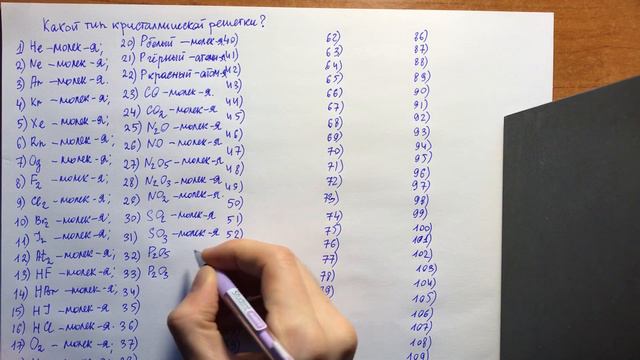 Какой тип кристаллической решетки?
1) He – молек-я;
2) Ne – молек-я;
3) Ar – молек-я.
4) Kr – молек-я;
5) Xe – молек-я;
6) Rn – молек-я;
7) O3 – молек-я;
8) F2 – молек-я;
9) Cl2 – молек-я;
10) Br2 – молек-я;
11) I2 – молек-я;
12) At2 – молек-я;
13) HF – молек-я;
14) HBr – молек-я;
15) HI – молек-я;
16) HCl – молек-я;
17) O2 – молек-я;
20) P белый – молек-я
21) P чёрный – атом-я
22) P красный – атом-я
23) CO – молек-я.
24) CO2 – молек-я
25) N2O – молек-я
26) NO – молек-я
27) N2O5 – молек-я
28) N2O3 – молек-я
29) NO2 – молек-я
30) SO2 – молек-я
31) SO3 – молек-я
32) P2O5
33) P2O3
34)
35)
36)
37)
40)
41)
42)
43)
44)
45)
46)
47)
48)
49)
50)
51)
52)
62)
63)
64)
65)
66)
67)
68)
69)
70)
71)
72)
73)
74)
75)
76)
77)
78)
86)
87)
88)
89)
90)
91)
92)
93)
94)
95)
96)
97)
98)
99)
100)
101)
102)
103)
104)
105)
106)
107)
108)
109)